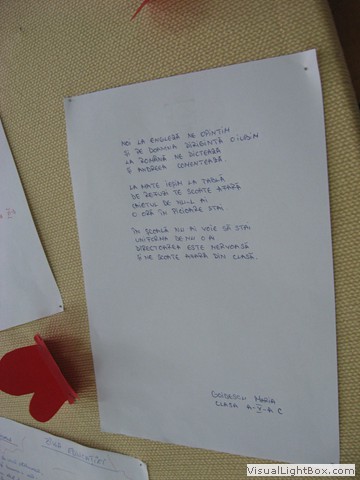 NOI LA ENGLEZĂ NE OPINTIM
ȘI PE DOAMNA O IUBIM
LA ROMÂNĂ NE DICTEAZĂ
ȘI ANDREEA COMENTEAZĂ.
LA MATE IEȘIM LA TABLĂ
DE NU TE SCOATE AFARĂ
CAIETUL DE NU-L AI
O ORĂ ÎN PICIOARE STAI
ÎN ȘCOALĂ NU AI VOIE SĂ STAI
UNIFORMA DE NU O AI
DIRECTOAREA ESTE NERVOASĂ
ȘI NE SCOATE AFARĂ DIN CLASĂ.
MARIA
CLASA A-V-A C
VisualLightBox.com